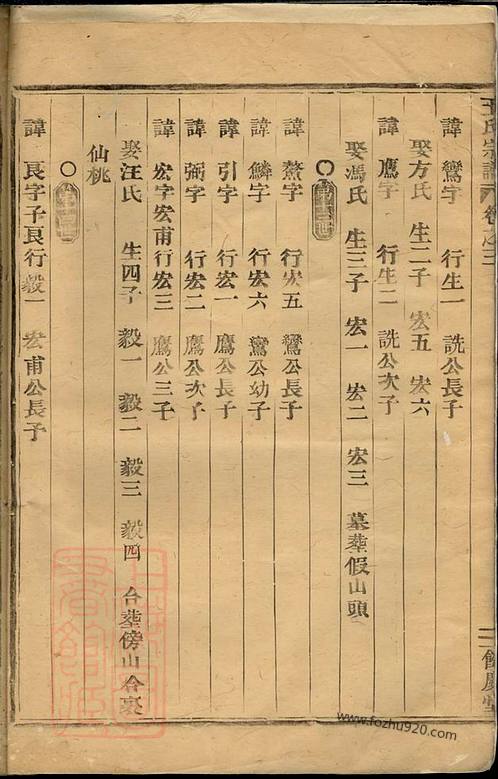 王氏宗譜 卷之三
諱 鸞字 行生一 詵公長子
娶方氏 生二子 宏五 宏六
諱 鷹字 行生二 詵公次子
娶馮氏 生三子 宏一 宏二 宏三 墓葬假山頭
諱 鰲字 行宏五 鸞公長子
諱 鱗字 行宏六 鸞公幼子
諱 引字 行宏一 鷹公長子
諱 弼字 行宏二 鷹公次子
諱 宏字宏甫行宏三 鷹公三子
娶汪氏 生四子 毅一 毅二 毅三 毅四 合葬傍山合裏
仙桃
諱 良字子良行毅一 宏甫公長子
二
www.fozhu920.com